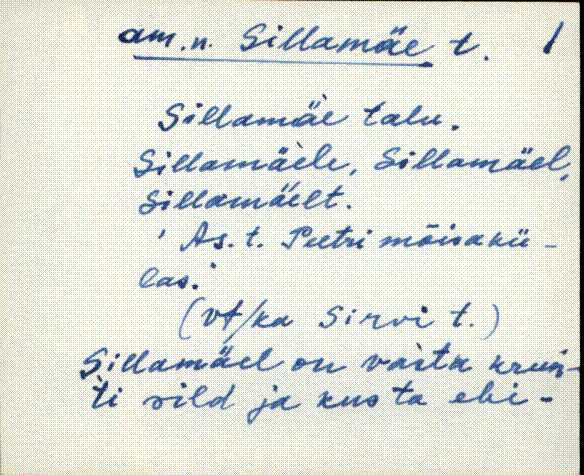 am.n. Sillamäe t. 1
Sillamäe talu.
Sillamäele, Sillamäel,
Sillamäelt.
' As. t. Peetri mõisakü-
las.'
(vt/ka Sirvi t.)
Sillamäel on vasta krun-
ti sild ja kus ta ehi-